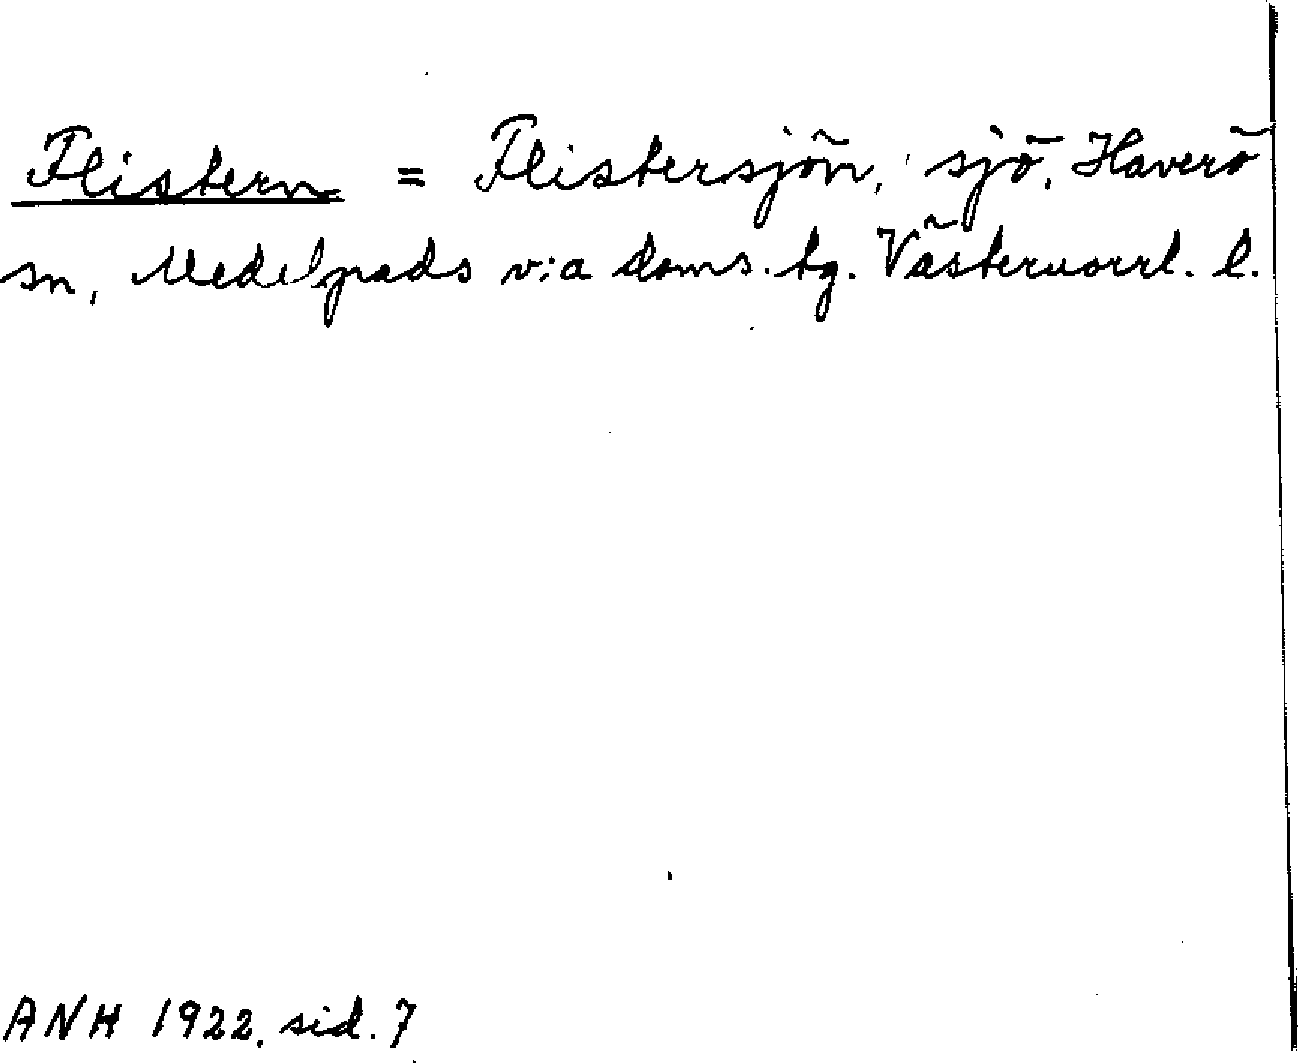 Flistern = Flistersjön, sjö, Haverö
sn, Medelpads v:a doms. tg. Västernorrl. l.
ANH 1922, sid. 7